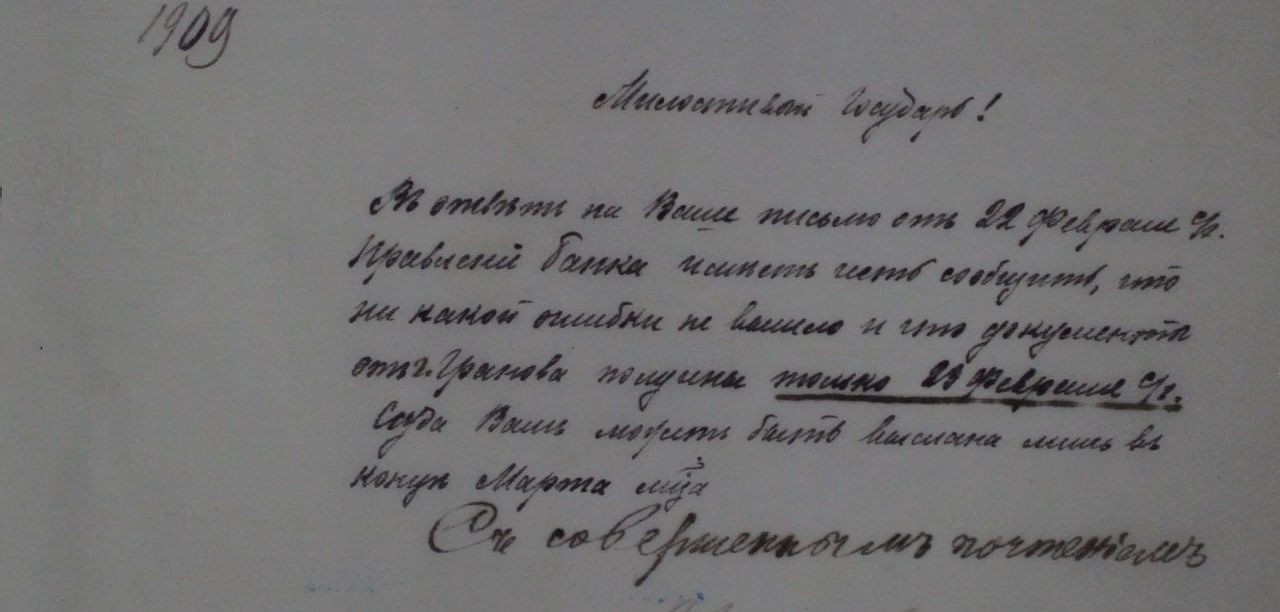 1909
Милостивый Государь!
Въ отвѣтъ на Ваше письмо отъ 22 Февраля с/г.
Правленіе Банка имѣетъ честь сообщить, что
ни какой ошибки не вышло и что документы
отъ г. Гранова получены только 23 Февраля с/г.
Ссуда Вамъ можетъ быть выслана лишь въ
концѣ Марта мца
Съ совершеннымъ почтеніемъ